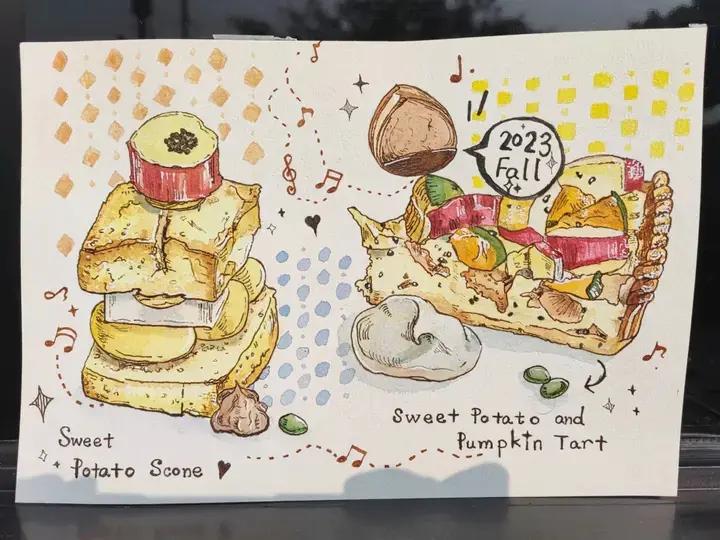 2023
Fall
Sweet
Potato Scone
Sweet Potato and
Pumpkin Tart